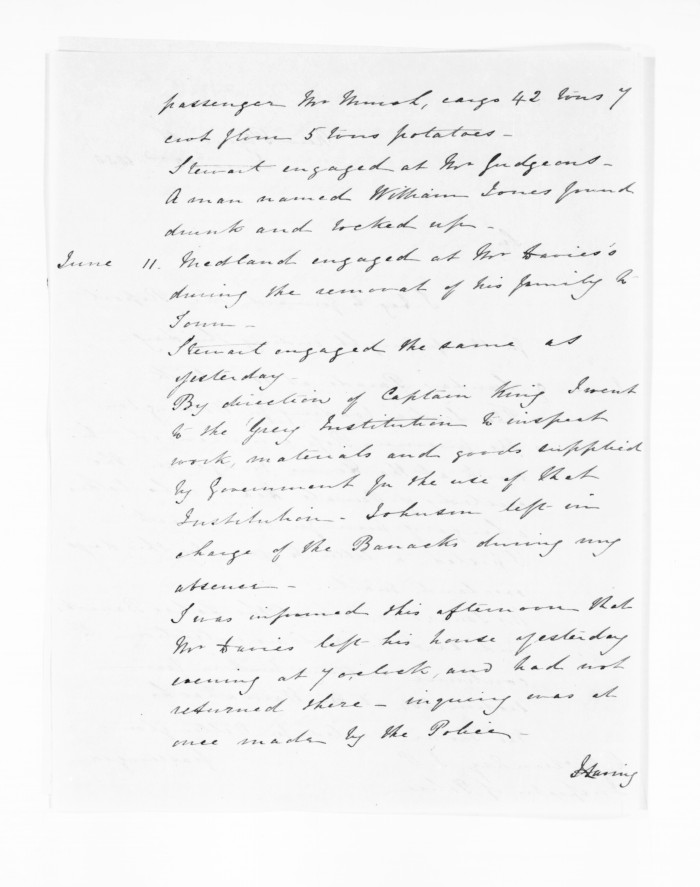 passenger Mr Minch, cargo 42 tons 7
cwt flour 5 tons potatoes -
Stewart engaged at Mr Gudgeons -
A man named William Jones found
drunk and locked up -
June 11. Medland engaged at Mr Davies's
during the removal of his family to
Town -
Stewart engaged the same as
yesterday -
By direction of Captain King I went
to the Grey Institution to inspect
work, materials and goods supplied
by Government for the use of that
Institution - Johnson left in
charge of the Barracks during my
absence -
I was informed this afternoon that
Mr Davies left his house yesterday
evening at 7 o,clock, and had not
returned there - inquiry was at
once made by the Police -
Having